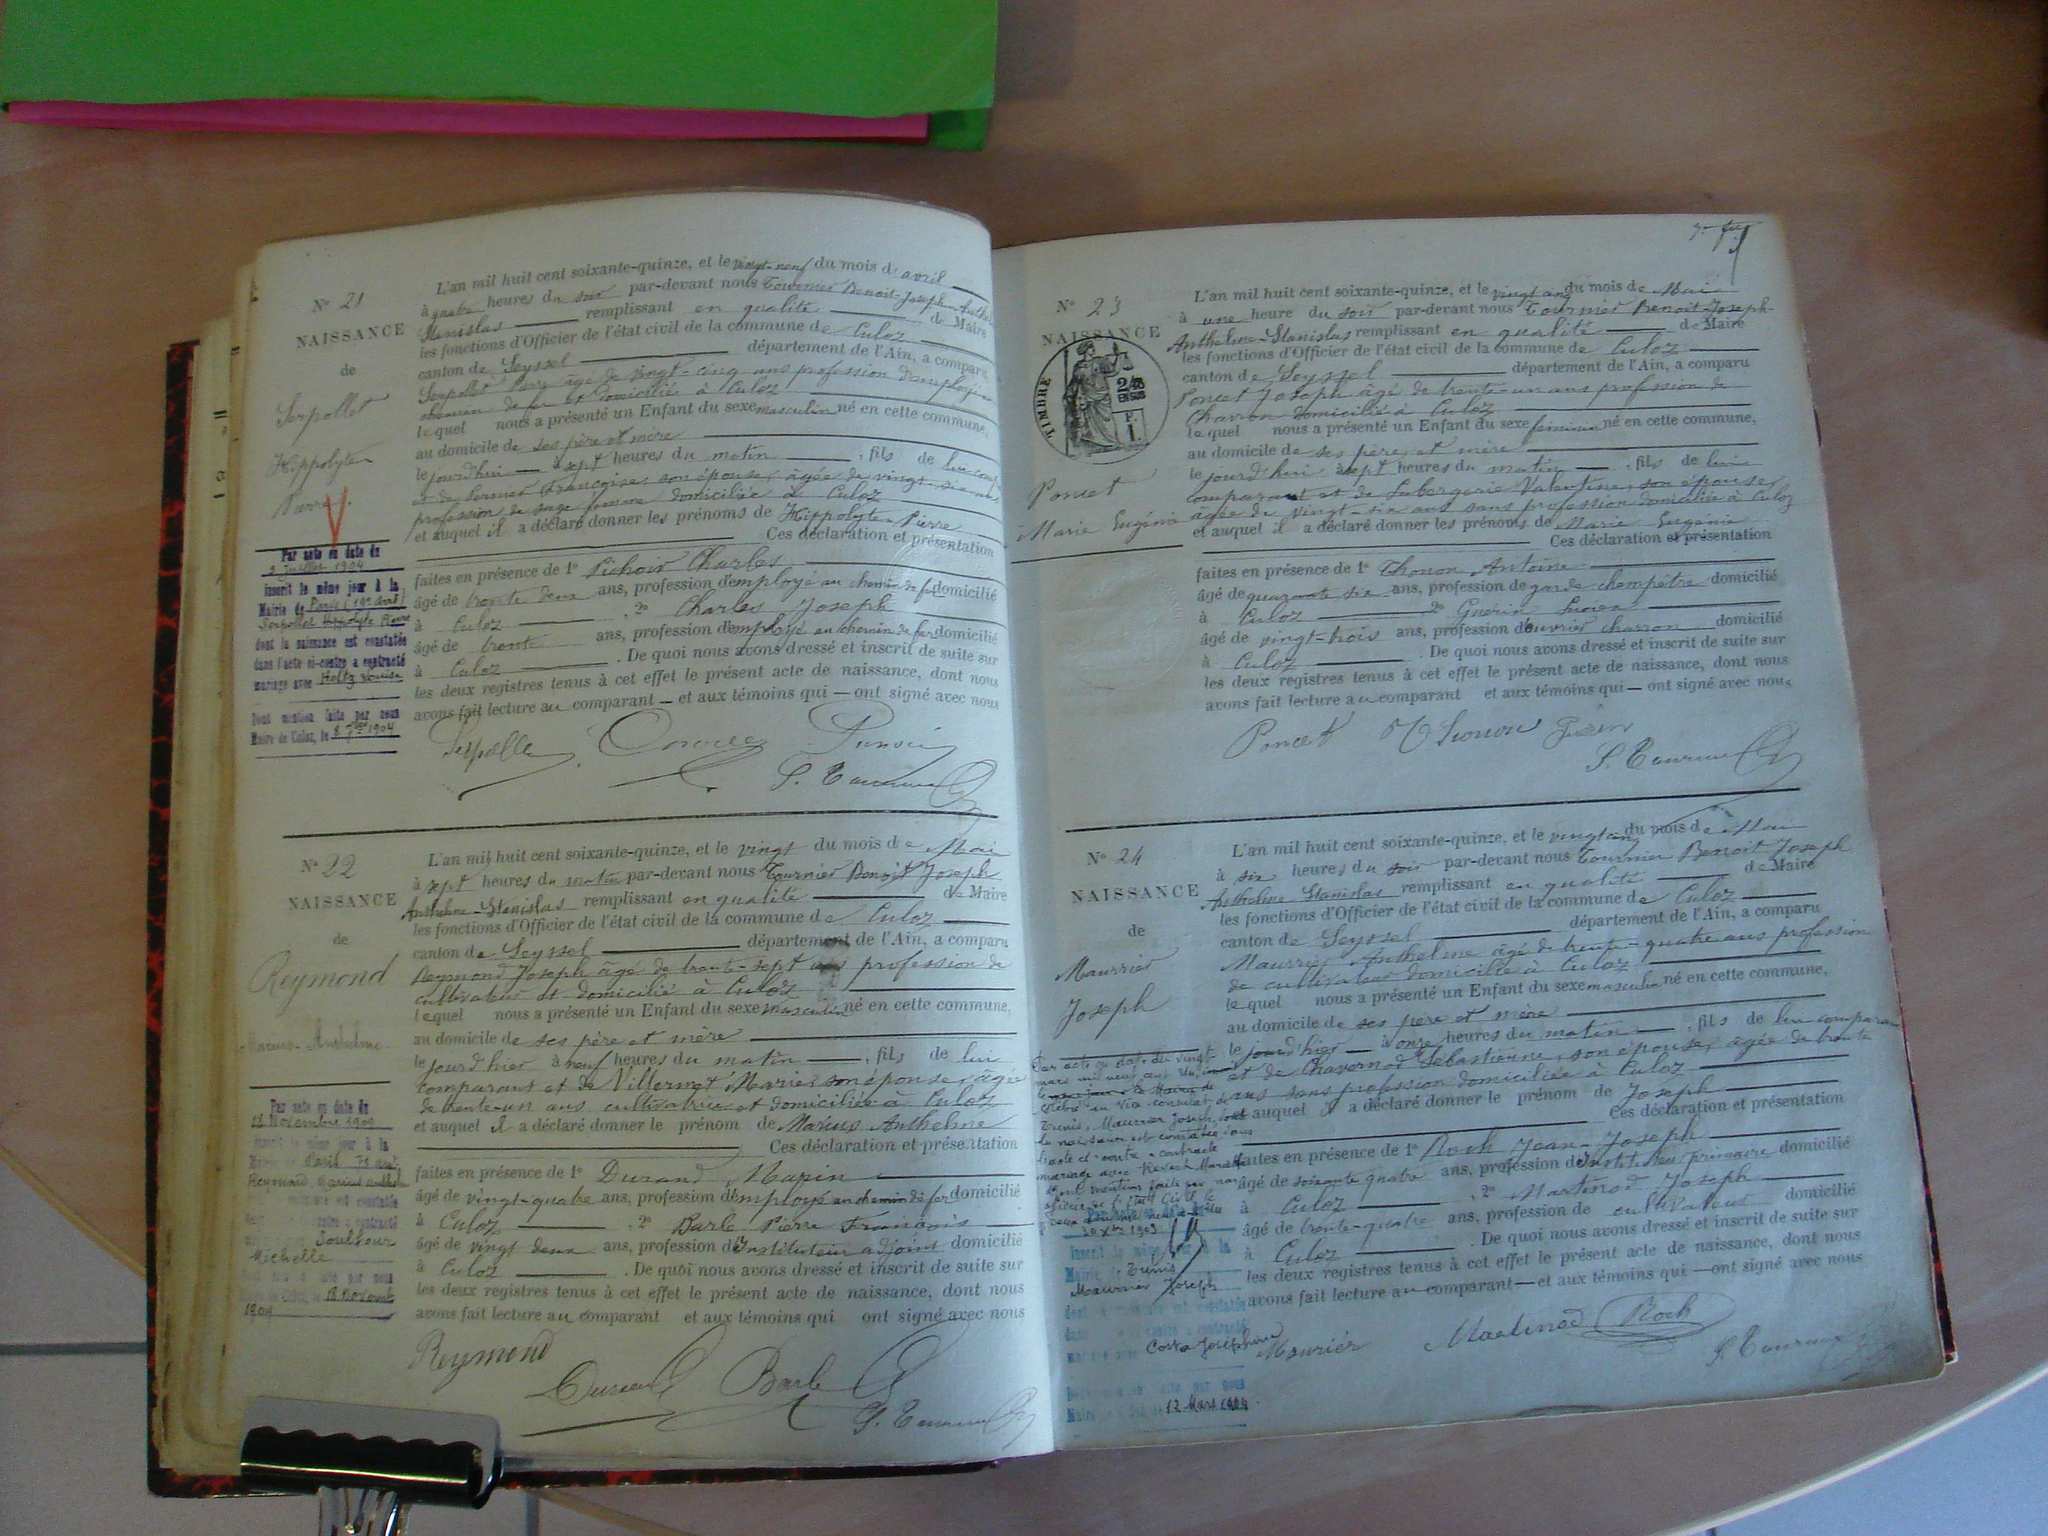 N° 21
NAISSANCE
de
Serpollet
Hippolyte
Pierre
Par acte en date du
2 Juillet 1904
inscrit le même jour à la
Mairie de Paris (19e arrt)
Serpollet Hippolyte Pierre
dont la naissance est constatée
dans l'acte ci-contre a contracté
mariage avec Holtz Louise
Dont mention faite par nous
Maire de Culoz, le 8 7bre 1904
L'an mil huit cent soixante-quinze, et le vingt-neuf du mois d'avril
à quatre heures du soir par-devant nous Tournier Benoit-Joseph-Anthelme
Stanislas remplissant en qualité de Maire
les fonctions d'Officier de l'état civil de la commune de Culoz
canton de Seyssel département de l'Ain, a comparu
Serpollet Pierre âgé de vingt-cinq ans profession d'employé au
chemin de fer et domicilié à Culoz
lequel nous a présenté un Enfant du sexe masculin né en cette commune,
au domicile de ses père et mère
le jourd'hui à sept heures du matin, fils de lui comparant
et de Françoise, son épouse, âgée de vingt-six ans
profession de sage femme domiciliée à Culoz
et auquel il a déclaré donner les prénoms de Hippolyte Pierre
Ces déclaration et présentation
faites en présence de 1° Pichoir Charles
âgé de trente deux ans, profession d'employé au chemin de fer domicilié
à Culoz, 2° Charles Joseph
âgé de trente ans, profession d'employé au chemin de fer domicilié
à Culoz. De quoi nous avons dressé et inscrit de suite sur
les deux registres tenus à cet effet le présent acte de naissance, dont nous
avons fait lecture au comparant et aux témoins qui ont signé avec nous
N° 22
NAISSANCE
de
Reymond
Marius-Anthelme
Par acte en date du
18 Novembre 1909
inscrit le même jour à la
Mairie de Paris
Reymond Marius Anthelme
Michelle
18 Novemb
1909
L'an mil huit cent soixante-quinze, et le vingt du mois de Mai
à sept heures du matin par-devant nous Tournier Benoit Joseph
Anthelme-Stanislas remplissant en qualité de Maire
les fonctions d'Officier de l'état civil de la commune de Culoz
canton de Seyssel département de l'Ain, a comparu
Reymond Joseph âgé de trente-sept ans profession de
cultivateur et domicilié à Culoz
lequel nous a présenté un Enfant du sexe masculin né en cette commune,
au domicile de ses père et mère
le jourd'hier à neuf heures du matin, fils de lui
comparant et de Villermet Marie, son épouse, âgée
de trente-un ans cultivatrice et domiciliée à Culoz
et auquel il a déclaré donner le prénom de Marius Anthelme
Ces déclaration et présentation
faites en présence de 1° Durand Marin
âgé de vingt-quatre ans, profession d'employé au chemin de fer domicilié
à Culoz, 2° Barle Pierre François
âgé de vingt deux ans, profession d'instituteur adjoint domicilié
à Culoz. De quoi nous avons dressé et inscrit de suite sur
les deux registres tenus à cet effet le présent acte de naissance, dont nous
avons fait lecture au comparant et aux témoins qui ont signé avec nous
Reymond
Durand Barle
N° 23
NAISSANCE
TIMBRE
2/10
EN SUS
Poncet
Marie Eugénie
L'an mil huit cent soixante-quinze, et le vingt cinq du mois de Mai
à une heure du soir par-devant nous Tournier Benoit-Joseph-
Anthelme-Stanislas remplissant en qualité de Maire
les fonctions d'Officier de l'état civil de la commune de Culoz
canton de Seyssel département de l'Ain, a comparu
Poncet Joseph âgé de trente-un ans profession de
Charron domicilié à Culoz
lequel nous a présenté un Enfant du sexe féminin né en cette commune,
au domicile de ses père et mère
le jourd'hui à sept heures du matin, fils de lui
comparant et de Lubergerie Valentine, son épouse,
âgée de vingt-six ans sans profession domiciliée à Culoz
et auquel il a déclaré donner les prénoms de Marie Eugénie
Ces déclaration et présentation
faites en présence de 1° Thonon Antoine
âgé de quarante six ans, profession de garde champêtre domicilié
à Culoz 2° Guerin
âgé de vingt-trois ans, profession d'ouvrier charron domicilié
à Culoz. De quoi nous avons dressé et inscrit de suite sur
les deux registres tenus à cet effet le présent acte de naissance, dont nous
avons fait lecture au comparant et aux témoins qui ont signé avec nous
Poncet Thonon
N° 24
NAISSANCE
de
Maurrier
Joseph
30 Xbre 1903
Tunis
Maurrier Joseph
Costa Joséphine
12 Mars 1904
L'an mil huit cent soixante-quinze, et le vingt cinq du mois de Mai
à six heures du soir par-devant nous Tournier Benoit Joseph
Anthelme Stanislas remplissant en qualité de Maire
les fonctions d'Officier de l'état civil de la commune de Culoz
canton de Seyssel département de l'Ain, a comparu
Maurrier Anthelme âgé de trente-quatre ans profession
de cultivateur domicilié à Culoz
lequel nous a présenté un Enfant du sexe masculin né en cette commune,
au domicile de ses père et mère
le jourd'hier à onze heures du matin, fils de lui comparant
et de Chavornod Sébastienne, son épouse, âgée de trente
ans sans profession domiciliée à Culoz
et auquel il a déclaré donner le prénom de Joseph
Ces déclaration et présentation
faites en présence de 1° Roch Jean-Joseph
âgé de soixante quatre ans, profession d'instituteur primaire domicilié
à Culoz, 2° Martinod Joseph
âgé de trente-quatre ans, profession de cultivateur domicilié
à Culoz. De quoi nous avons dressé et inscrit de suite sur
les deux registres tenus à cet effet le présent acte de naissance, dont nous
avons fait lecture au comparant et aux témoins qui ont signé avec nous
Maurier Martinod Roch